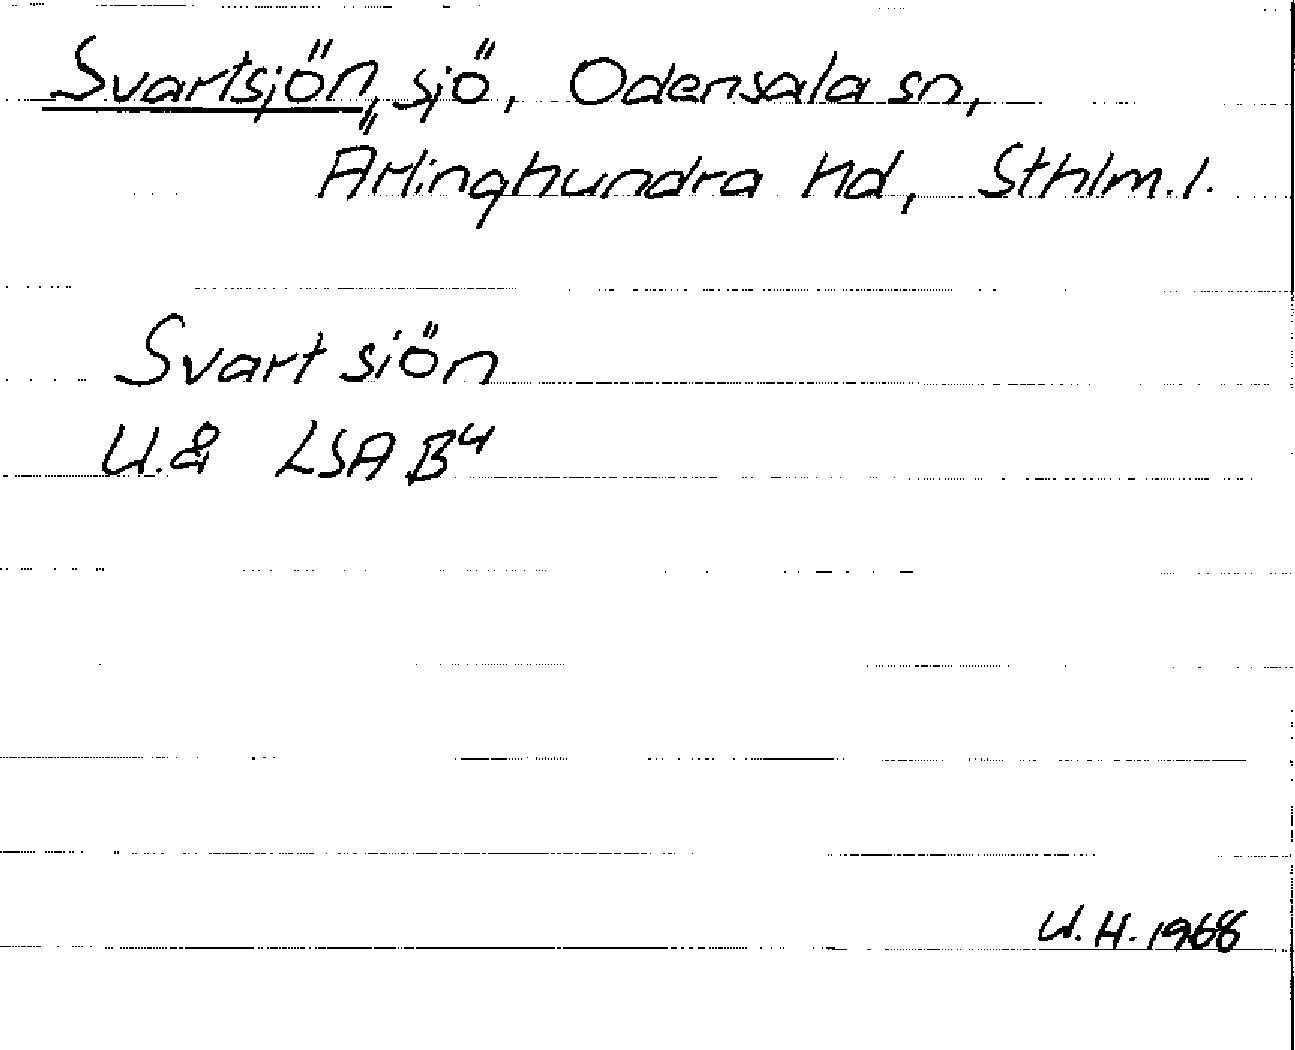 Svartsjön, sjö, Odensala sn,
Ärlinghundra hd, Sthlm.l.
Svart siön
U.å LSA B⁴
U.H. 1968